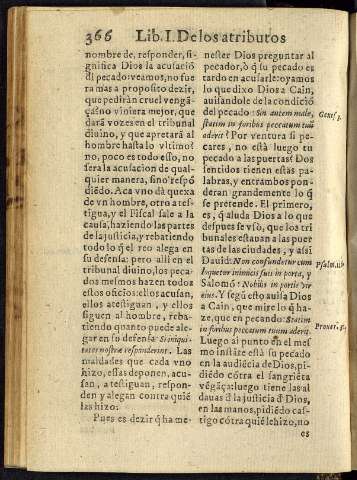 366 Lib. I. De los atributos
nombre de, responder, si-
gnifica Dios la acusació
đl pecado: veamos, no fue
ra mas a proposito dezir,
que pedirán cruel vengá-
ça: no viniera mejor, que
dará vozes en el tribunal
diuino, y que apretará al
hombre hasta lo vltimo?
no, poco es todo esso, no
fera la acusacion de qual-
quier manera, sino respó
diédo. Aca vno dà quexa
de vn hombre, otro ates-
tigua, y el Fiscal sale a la
causa, haziendo las partes
de la justicia, y rebatiendo
todo lo q̃ el reo alega en
su defensa: pero alli en el
tribunal diuino, los peca-
dos mesmos hazen todos
estos oficios: ellos acusan,
ellos atestiguan, y ellos
siguen al hombre, reba-
tiendo quanto puede ale-
gar en su defensa: Si iniqui-
tates nostræ responderint. Las
maldades que cada vno
hizo, essas deponen, acu-
san, atestiguan, respon-
den y alegan contra quié
las hizo:
Pues es dezir q̃ ha me-
nester Dios preguntar al
pecador, ò q̃ su pecado es
tardo en acusarle: oyamos
lo que dixo Dios a Cain,
auisandole de la condició
del pecado: Sin autem male,
statim in foribus peccatum tuũ
aderit? Por ventura si pe-
cares, no està luego tu
pecado a las puertas? Dos
sentidos tienen estas pa-
labras, y entrambos pon-
deran grandemente lo q̃
se pretende. El primero,
es, q̃ aluda Dios a lo que
despues se vsò, que los tri
bunales estauan a las puer
tas de las ciudades, y assi
Dauid: Non confundetur cum
loquetur inimicis suis in porta, y
Salomó: Nobilis in portis vir
eius. Y segũ esto auisa Dios
a Cain, que mire lo q̃ ha-
ze, que en pecando: Statim
in foribus peccatum tuum aderit.
Luego al punto en el mes
mo instáte està su pecado
en la audiécia de Dios, pi-
diédo cótra el sangriéta
végãça: luego tiene las al
dauas đ la justicia đ Dios,
en las manos, pidiédo cas-
tigo cótra quié le hizo, no
es
Genes.